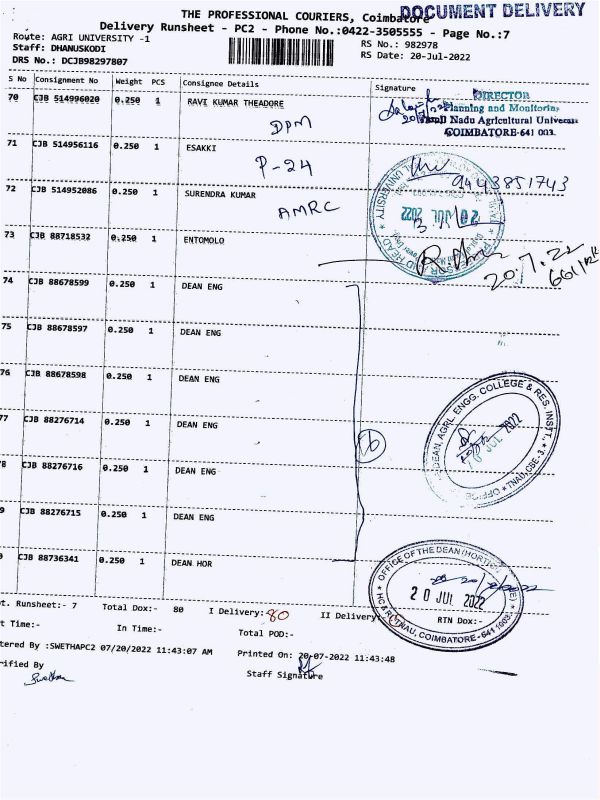 DOCUMENT DELIVERY
THE PROFESSIONAL COURIERS, Coimbatore
Delivery Runsheet - PC2 - Phone No.:0422-3505555 - Page No.:7
Route: AGRI UNIVERSITY -1
RS No.: 982978
Staff: DHANUSKODI
RS Date: 20-Jul-2022
DRS No.: DCJB98297807
S No Consignment No Weight PCS Consignee Details Signature
70 CJB 514996020 0.250 1 RAVI KUMAR THEADORE
DPM
DIRECTOR
Planning and Monitoring
Tamil Nadu Agricultural Univers
COIMBATORE-641 003.
71 CJB 514956116 0.250 1 ESAKKI
P-24
9443851743
72 CJB 514952086 0.250 1 SURENDRA KUMAR
AMRC
20 JUL 2022
73 CJB 88718532 0.250 1 ENTOMOLO
20.7.22
74 CJB 88678599 0.250 1 DEAN ENG
75 CJB 88678597 0.250 1 DEAN ENG
76 CJB 88678598 0.250 1 DEAN ENG
77 CJB 88276714 0.250 1 DEAN ENG
8 CJB 88276716 0.250 1 DEAN ENG
9 CJB 88276715 0.250 1 DEAN ENG
CJB 88736341 0.250 1 DEAN HOR
DEAN, AGRL. ENGG. COLLEGE & RES. INSTT., * TNAU, CBE-3. * OFFICE
JUL 2022
OFFICE OF THE DEAN
20 JUL 2022
TNAU, COIMBATORE-641 003.
t. Runsheet:- 7 Total Dox:- 80 I Delivery:80 II Delivery:- RTN Dox:-
t Time:- In Time:- Total POD:-
tered By :SWETHAPC2 07/20/2022 11:43:07 AM Printed On: 20-07-2022 11:43:48
rified By Staff Signature